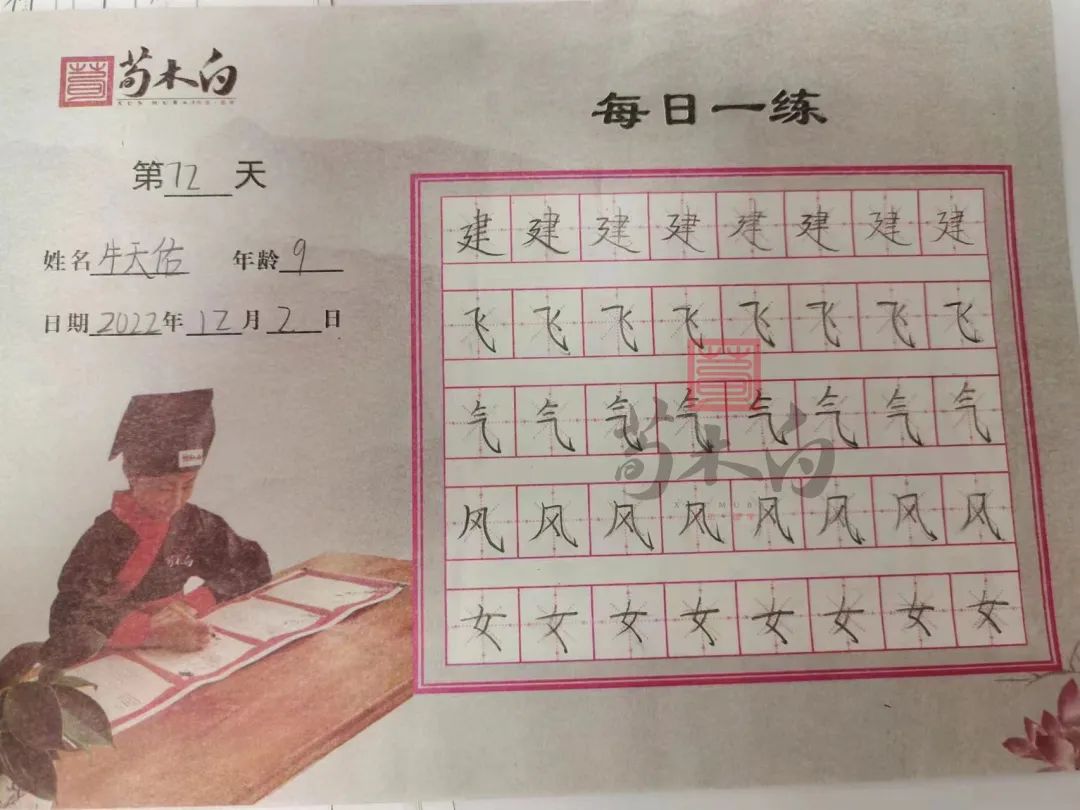 荀木白
XUN MUBAI
每日一练
第12天
姓名牛天佑 年龄9
日期2022年12月2日
建建建建建建建建
飞飞飞飞飞飞飞飞
气气气气气气气气
风风风风风风风风
女女女女女女女女
荀木白